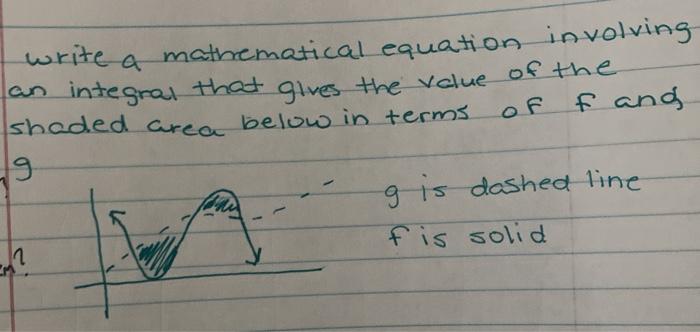 write a mathematical equation involving
an integral that gives the value of the
shaded area below in terms of f and
g
g is dashed line
f is solid